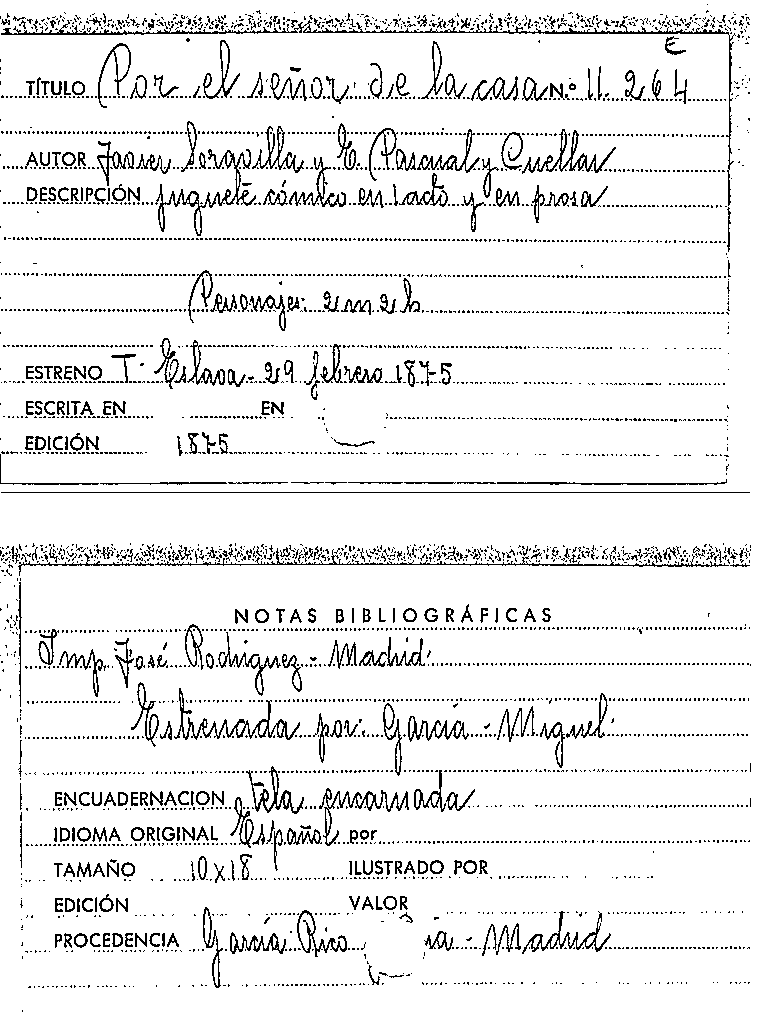 E
TÍTULO Por el señor de la casa N.º 11.264
AUTOR Javier Soravilla y E. Pascual y Cuellar
DESCRIPCIÓN juguete cómico en 1 acto y en prosa
Personajes: 2 m 2 h
ESTRENO T. Eslava - 29 febrero 1875
ESCRITA EN EN
EDICIÓN 1875
NOTAS BIBLIOGRÁFICAS
Imp. José Rodriguez - Madrid.
Estrenada por: García - Miguel.
ENCUADERNACION tela encarnada
IDIOMA ORIGINAL Español por
TAMAÑO 10x18 ILUSTRADO POR
EDICIÓN VALOR
PROCEDENCIA García Rico - Madrid